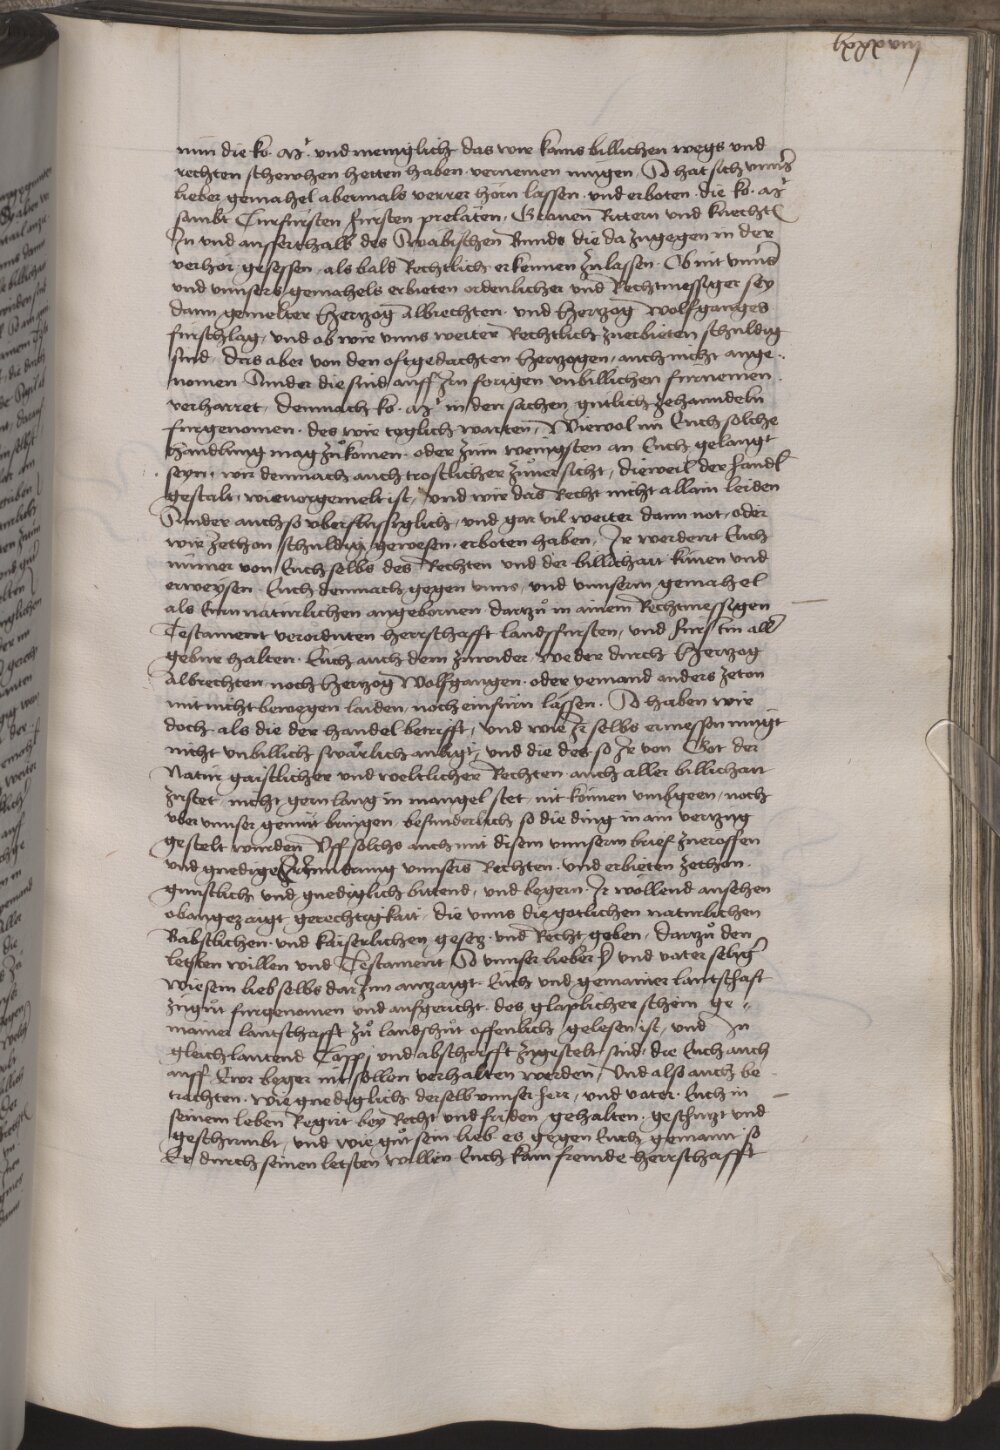 lxxxviij
nun die ko. Mt. und meniglich das wir kains billichen wegs und
rechten schewhen hetten haben vernemen mugen So hat sich unnser
lieber gemahel abermals verrer hörn lassen und erboten die ko. Mt.
sambt Curfürsten fursten prelaten Grauen Rittern und knecht
In und ausserthalb des Swabischen Bunds die da zugegen in der
verhör gesessen als bald Rechtlich erkennen zulassen Ob nit unns
und unnsers gemahels erbieten ordenlicher und Rechtmessiger sey
dann gemelter Hertzog Albrechten und Hertzog Wolfganges
furschlag und ob wir unns weiter Rechtlich zuerbieten schuldig
sind das aber von den oftgedachten Hertzogen auch nicht ange-
nomen Sunder die sind auff Irn forigen unbillichen furnemen
verharret Demnach ko. Mt. in den sachen gutlich zehanndeln
furgenomen des wir teglich warten Wiewol nu Euch solche
handlung mag zukomen oder zum wenigsten an Euch gelangt
seyn wir demnach auch trostlicher zuuersicht dieweil der handl
gestalt wieuorgemelt ist und wir das Recht nicht allain leiden
Sunder auch so uberflussiglich und gar vil weiter dann not oder
wir zethon schuldig gewesen erboten haben Ir werdennt Euch
nimer von Euch selbs des Rechten und der billichait kinen und
erweysen Euch demnach gegen unns und unnserm gemahel
als Eurn naturlichen angebornen darzu in ainem Rechtmessigen
Testament verordnten herrschafft landsfursten und Furstin aller
gebur halten Euch auch dem zuwider weder durch Hertzog
Albrechten noch Hertzog Wolfgangen oder yemand anders zeton
nit nicht bewegen laiden noch einfurn lassen So haben wir
doch als die der handel betrifft und wie Ir selbs ermessen mugt
nicht unbillich swärlich anligt und die des so Ir von Got der
Natur gaistlicher und weltlicher Rechten auch aller billichait
zustet nicht gern lang in mangel stet nit können umbgeen noch
uber unnser gemut bringen besunderlich so die ding in ain vertzug
gestelt wurden Uff solchs auch mit disem unnserm brief zueroffen
und gnedige Erynndrung unnsers Rechten und erbieten zethon
gunstlich und gnediglich bittend und begern Ir wollend ansehen
obangezaigt gerechtigkait die unns die gotlichen naturlichen
Babstlichen und kaiserlichen gesetz und Recht geben darzu den
letsten willen und Testament So unnser lieber her und vater selig
wie sein lieb selbs darinn anzaigt Euch und gemainer lantschaft
zugut furgenomen und aufgericht des glaplicher schein ge-
mainer lantschafft zu landshut offenlich gelesen ist und In
gleichlautend Coppi und abschrifft zugestelt sind die Euch auch
auff Ewr beger nit sollen verhalten werden Und also auch be-
trachten wie gnediglich derselb unnser herr und vater Euch in
seinem leben Regirt bey Recht und friden gehalten geschutzt und
geschirmbt und wie gut sein lieb es gegen Euch gemaint so
Er durch seinen letsten willen Euch kain fremde herrschafft